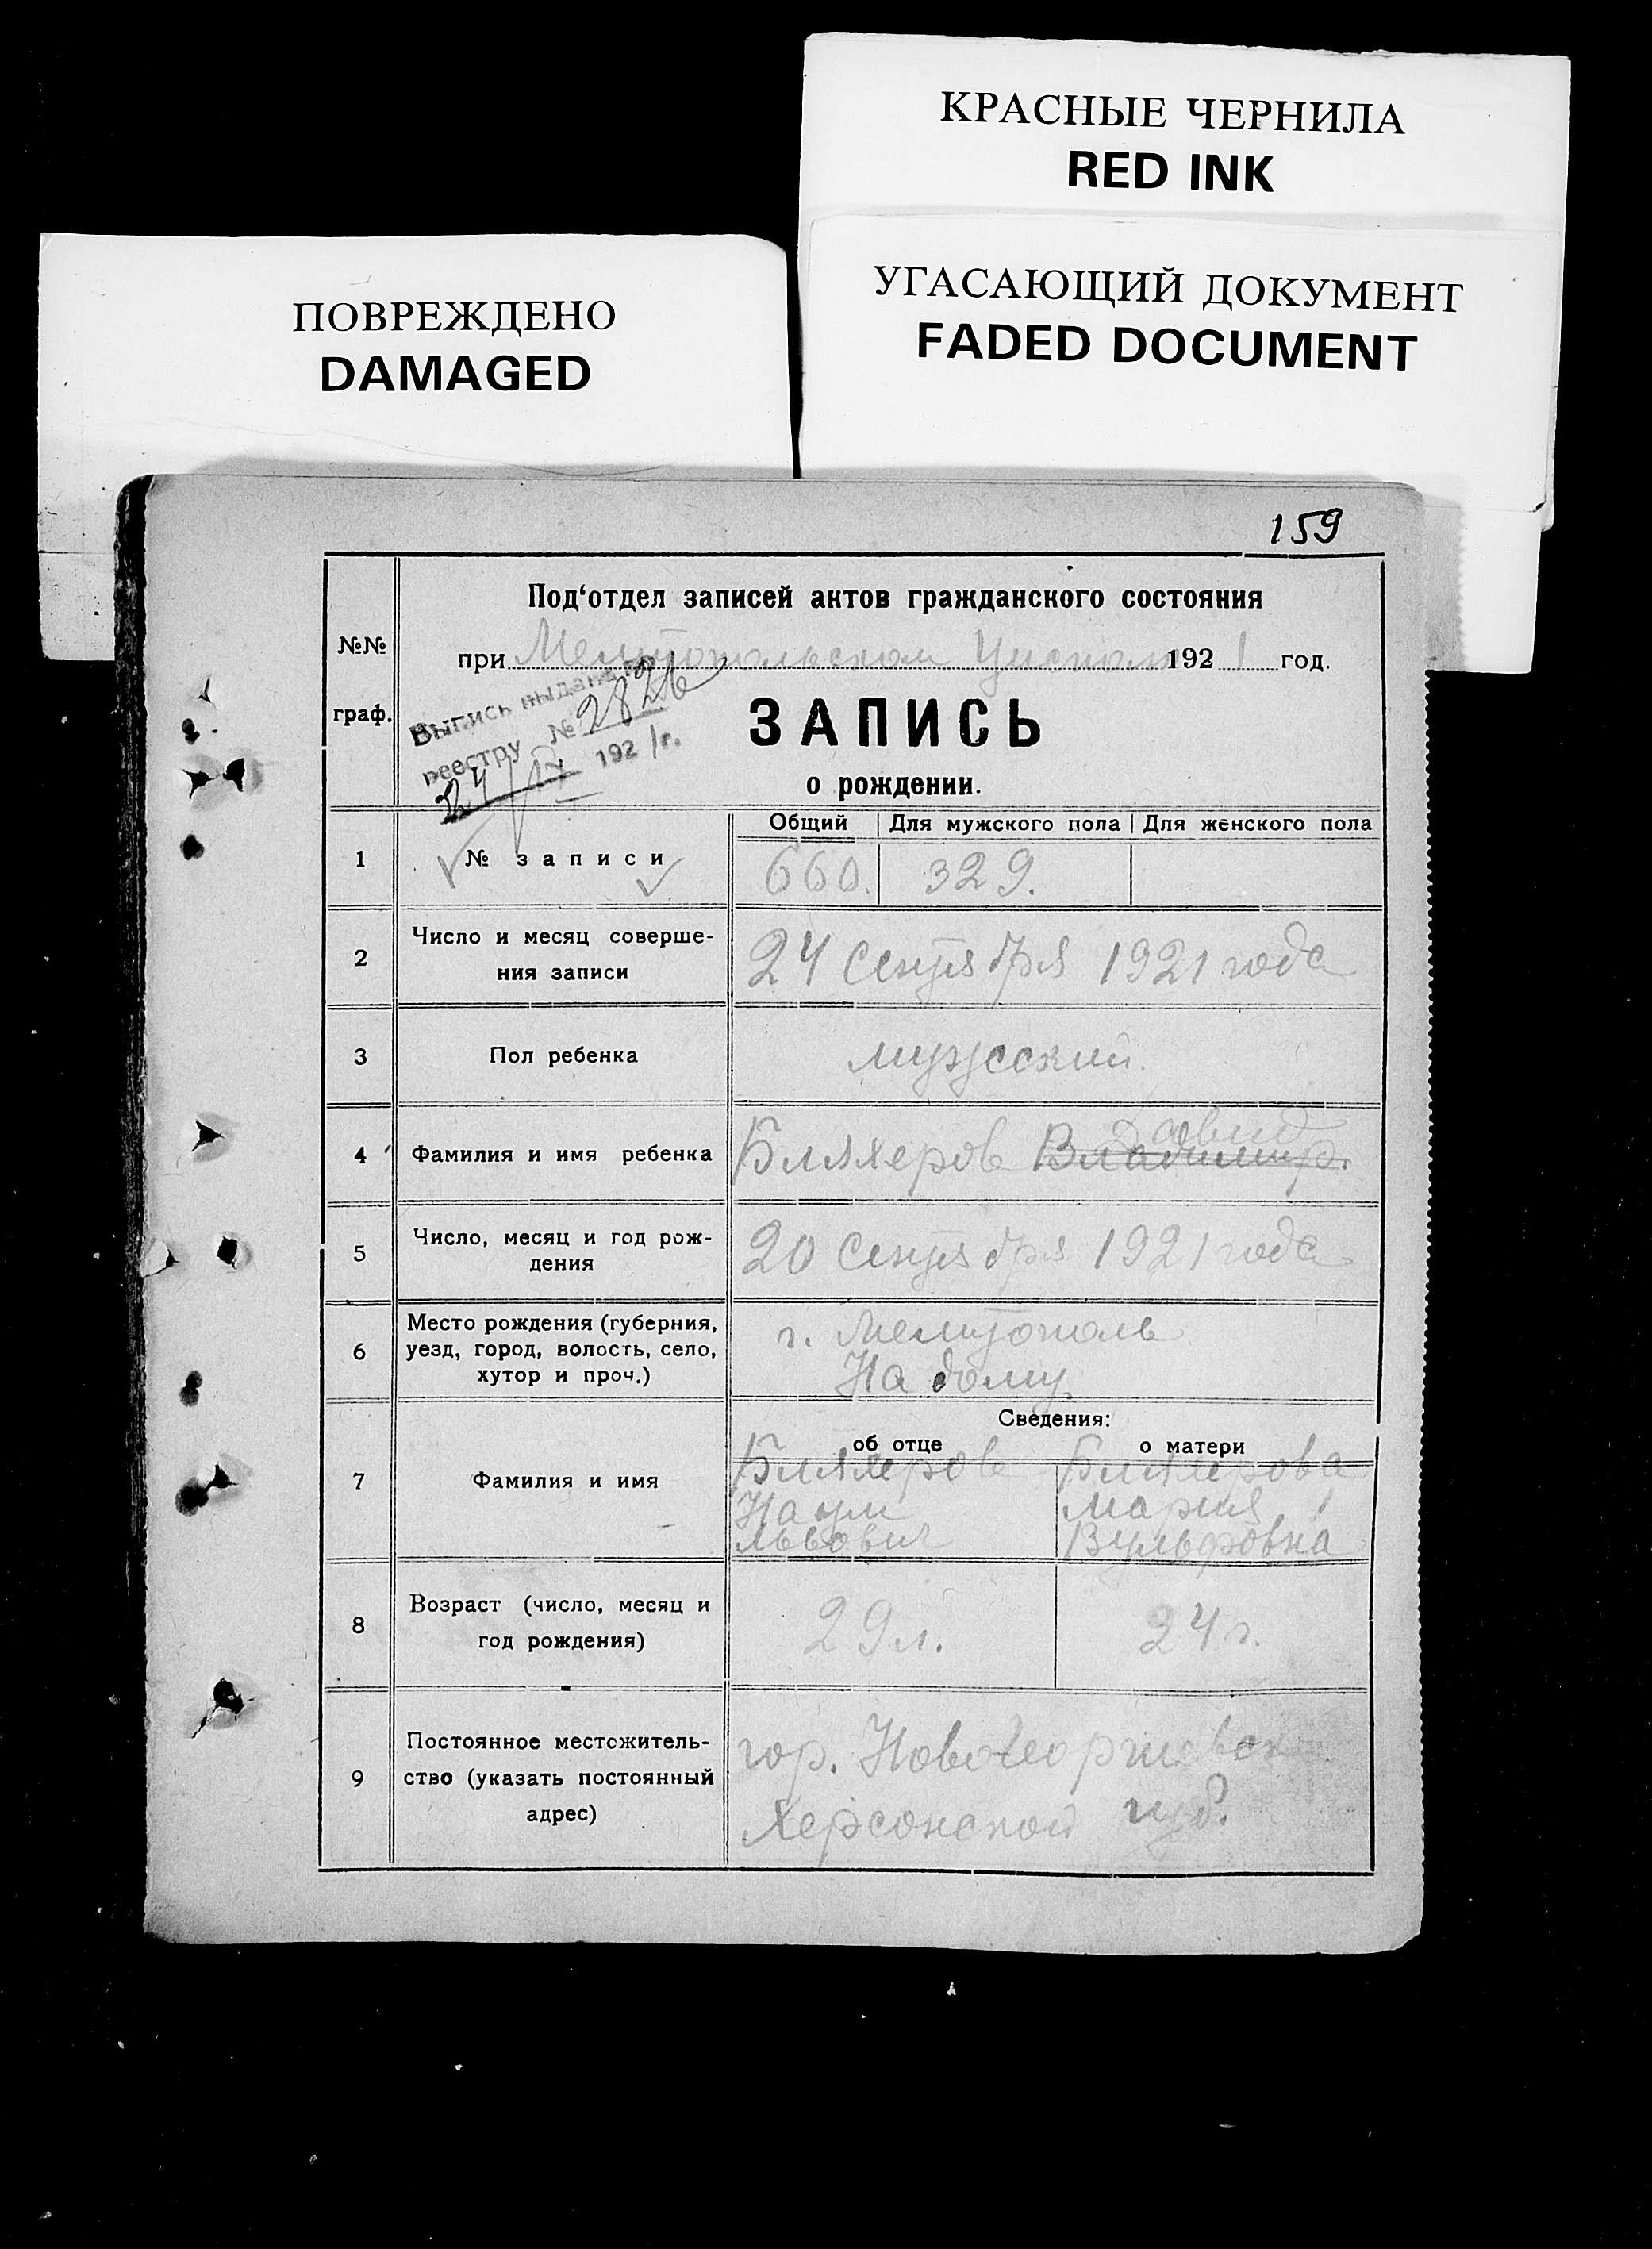 КРАСНЫЕ ЧЕРНИЛА
RED INK
УГАСАЮЩИЙ ДОКУМЕНТ
FADED DOCUMENT
ПОВРЕЖДЕНО
DAMAGED
159
№№
граф.
Под‘отдел записей актов гражданского состояния
при Мелитопольском Уисполк 1921 год.
Выпись выдана по
реестру № 2826
24/IX 1921 г.
ЗАПИСЬ
о рождении.
Общий Для мужского пола Для женского пола
1 № записи 660. 329.
2 Число и месяц соверше-
ния записи
24 Сентября 1921 года
3 Пол ребенка мужеский.
4 Фамилия и имя ребенка Бляхеров Владимир.
Давид
5 Число, месяц и год рож-
дения
20 Сентября 1921 года
6 Место рождения (губерния,
уезд, город, волость, село,
хутор и проч.)
г. Мелитополь
На дому
Сведения:
об отце о матери
7 Фамилия и имя
Бляхеров Бляхерова
Наум Мария
Львович Вульфовна
8 Возраст (число, месяц и
год рождения)
29 л. 24 г.
9 Постоянное местожитель-
ство (указать постоянный
адрес)
гор. Новогеоргиевск
Херсонской губ.